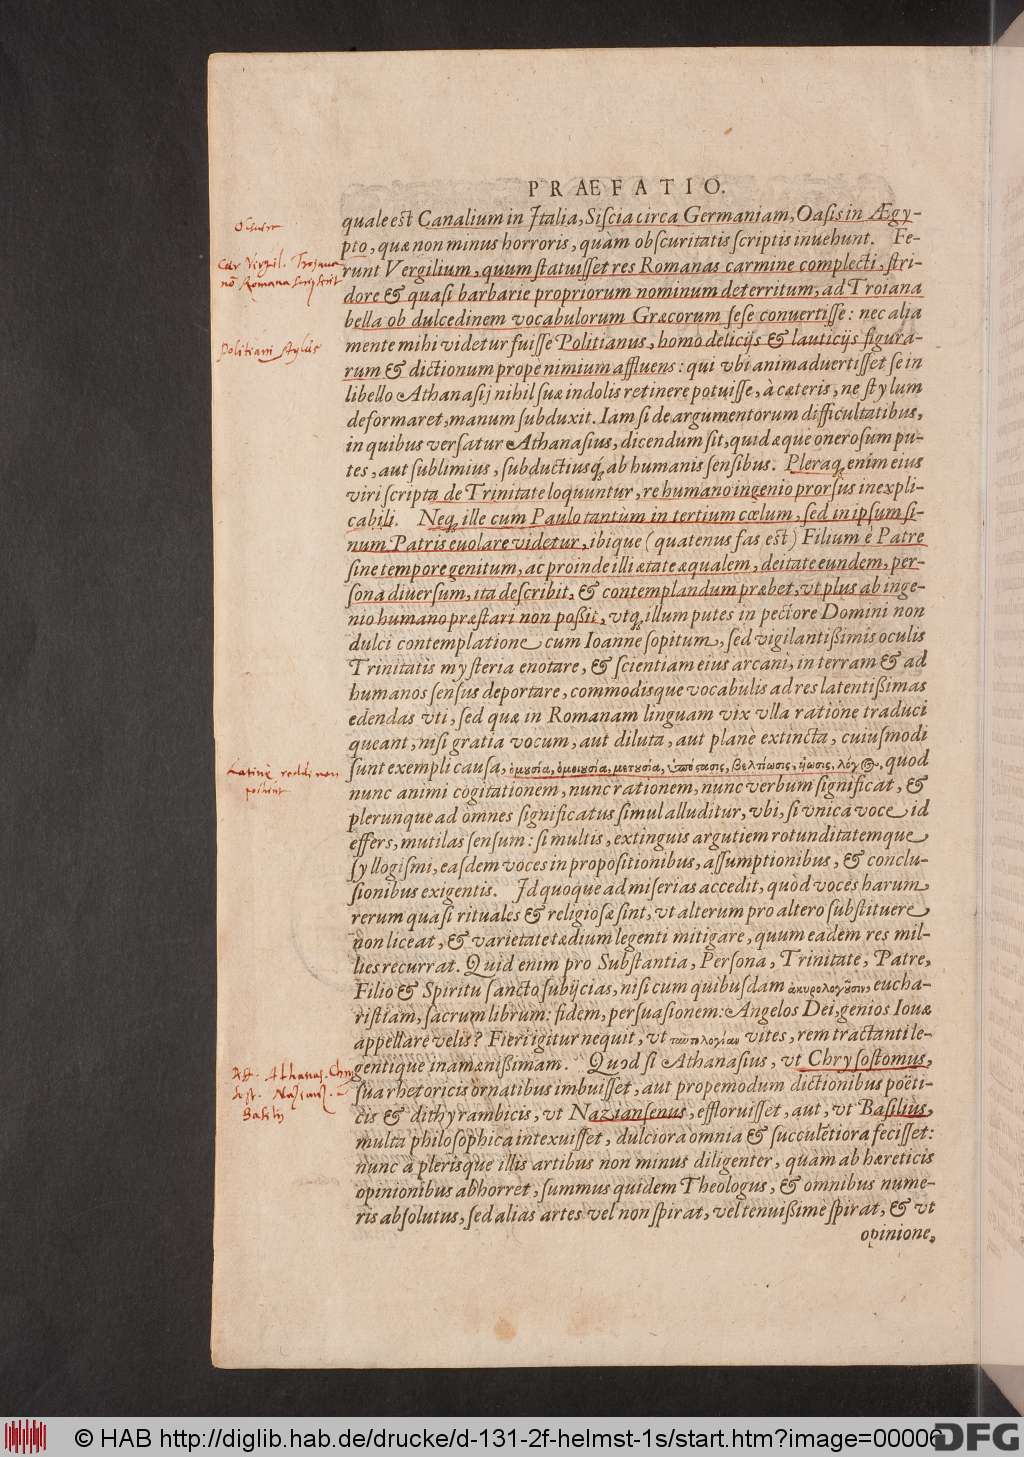 PRÆFATIO.
quale est Canalium in Italia, Siscia circa Germaniam, Oasis in Ægy-
pto, quæ non minus horroris, quàm obscuritatis scriptis inuehunt. Fe-
runt Vergilium, quum statuisset res Romanas carmine complecti, stri-
dore & quasi barbarie propriorum nominum deterritum, ad Troiana
bella ob dulcedinem vocabulorum Græcorum sese conuertisse: nec alia
mente mihi videtur fuisse Politianus, homo delicijs & lauticijs figura-
rum & dictionum prope nimium affluens: qui vbi animaduertisset se in
libello Athanasij nihil suæ indolis retinere potuisse, à cæteris, ne stylum
deformaret, manum subduxit. Iam si de argumentorum difficultatibus,
in quibus versatur Athanasius, dicendum sit, quid æque onerosum pu-
tes, aut sublimius, subductiusq́, ab humanis sensibus. Pleraq, enim eius
viri scripta de Trinitate loquuntur, re humano ingenio prorsus inexpli-
cabili. Neq, ille cum Paulo tantùm in tertium cœlum, sed in ipsum si-
num Patris euolare videtur, ibique (quatenus fas est) Filium è Patre
sine tempore genitum, ac proinde illi ætate æqualem, deitate eundem, per-
sona diuersum, ita describit, & contemplandum præbet, vt plus ab inge-
nio humano præstari non possit, vtq, illum putes in pectore Domini non
dulci contemplatione cum Ioanne sopitum, sed vigilantissimis oculis
Trinitatis mysteria enotare, & scientiam eius arcani, in terram & ad
humanos sensus deportare, commodisque vocabulis ad res latentissimas
edendas vti, sed quæ in Romanam linguam vix vlla ratione traduci
queant, nisi gratia vocum, aut diluta, aut planè extincta, cuiusmodi
sunt exempli causa, ὁμυσία, ὁμοιυσία, μετυσία, ὑπόστασις, βελτίωσις, ἥωσις, λόγος, quod
nunc animi cogitationem, nunc rationem, nunc verbum significat, &
plerunque ad omnes significatus simul alluditur, vbi, si vnica voce id
effers, mutilas sensum: si multis, extinguis argutiem rotunditatemque
syllogismi, easdem voces in propositionibus, assumptionibus, & conclu-
sionibus exigentis. Id quoque ad miserias accedit, quòd voces harum
rerum quasi rituales & religiosæ sint, vt alterum pro altero substituere
non liceat, & varietate tædium legenti mitigare, quum eadem res mil-
lies recurrat. Quid enim pro Substantia, Persona, Trinitate, Patre,
Filio & Spiritu sancto subijcias, nisi cum quibusdam ἀκυρολογοῦσιν, eucha-
ristiam, sacrum librum: fidem, persuasionem: Angelos Dei, genios Iouæ
appellare velis? Fieri igitur nequit, vt ταυτολογίαν vites, rem tractanti le-
gentique inamœnissimam. Quod si Athanasius, vt Chrysostomus,
sua rhetoricis ornatibus imbuisset, aut propemodum dictionibus poëti-
cis & dithyrambicis, vt Nazianſenus, effloruisset, aut, vt Basilius,
multa philosophica intexuisset, dulciora omnia & succulētiora fecisset:
nunc a plerisque illis artibus non minus diligenter, quàm ab hæreticis
opinionibus abhorret, summus quidem Theologus, & omnibus nume-
ris absolutus, sed alias artes vel non spirat, vel tenuissime spirat, & vt
opinione,
Cur Virgil. Trojana
nō Romana scripserit
Politiani stylus
Latinè reddi non
possunt
Athanas. Chry
sost. Nazianz.
Basilij
© HAB http://diglib.hab.de/drucke/d-131-2f-helmst-1s/start.htm?image=00006
DFG